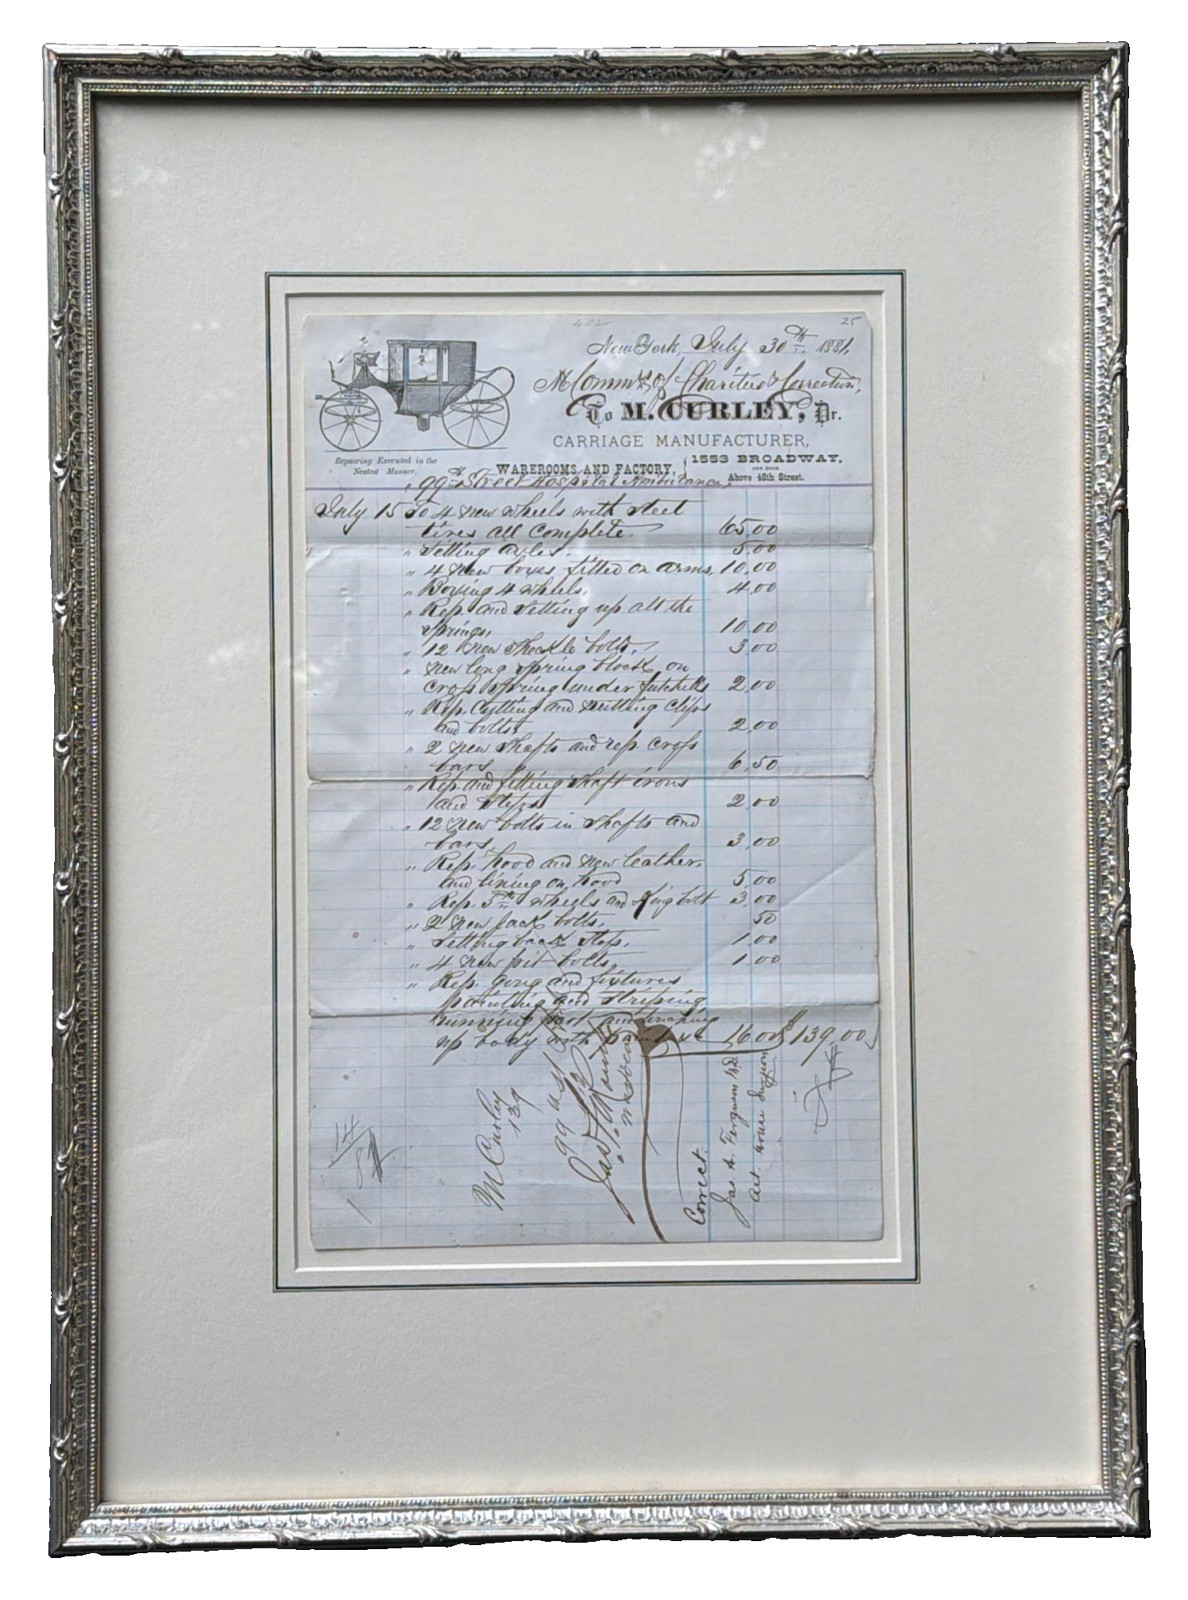 402
25
New York, July 30th 1881,
M Commrs of Charities & Correction,
To M. CURLEY, Dr.
CARRIAGE MANUFACTURER,
Repairing Executed in the
Neatest Manner.
WAREROOMS AND FACTORY,
1553 BROADWAY,
one door
Above 46th Street.
99th Street Hospital Ambulance,
July 15 To 4 new wheels with steel
tires all complete. 65,00
" Setting axles. 5,00
" 4 new boxes fitted on arms, 10,00
" Boxing 4 wheels. 4,00
" Rep. and setting up all the
springs. 10,00
" 12 new shackle bolts. 3,00
" new long spring block on
cross spring under futchells 2,00
" Rep. Cutting and nutting clips
and bolts 2,00
" 2 new shafts and rep. cross
bars 6,50
" Rep. and fitting shaft irons
and steps 2,00
" 12 new bolts in shafts and
bars. 3,00
" Rep. hood and new leather
and lining on hood 5,00
" Rep. 5th wheels and King bolt 3,00
" 2 new jack bolts. 50
" Setting back step. 1,00
" 4 new pit bolts. 1,00
" Rep. gong and fixtures
painting and striping
running part and
up body with 16,00 $139,00
M Curley
139
99
Jas
Correct.
Jas. A. Ferguson M.D.
Act House Surgeon